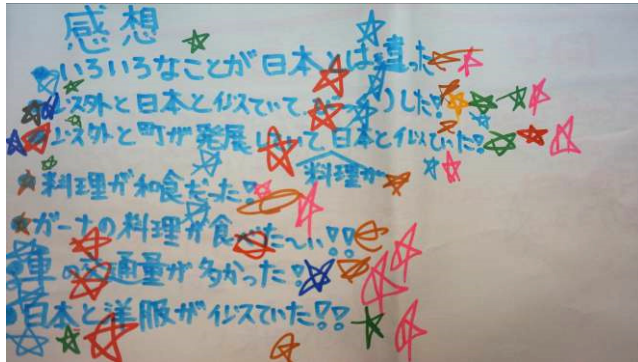 感想
・いろいろなことが日本とは違った
・以外と日本と似ていて りした!
・以外と町が発展していて日本と似ていた!
料理が
・料理が和食だった!
・ガーナの料理が食べた〜い!!
・車の交通量が多かった!
・日本と洋服が似ていた!!